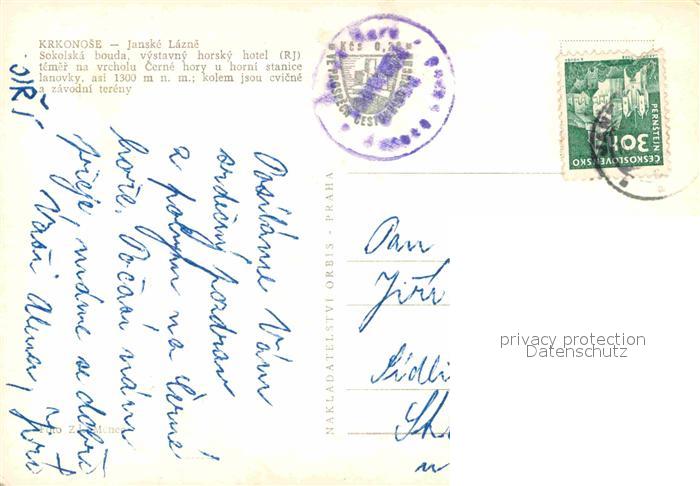 KRKONOŠE — Janské Lázně
Sokolská bouda, výstavný horský hotel (RJ)
téměř na vrcholu Černé hory u horní stanice
lanovky, asi 1300 m n. m.; kolem jsou cvičné
a závodní terény
Kčs 0,20
PERNŠTEJN
30h
ČESKOSLOVENSKO
Posíláme Vám
srdečný pozdrav
z pobytu na Černé
hoře. Počasí nám
přeje, máme se dobře
Vaši Alena, Jiří
JIŘÍ
NAKLADATELSTVÍ ORBIS - PRAHA
Pan
Jiří
Sídli
privacy protection
Datenschutz